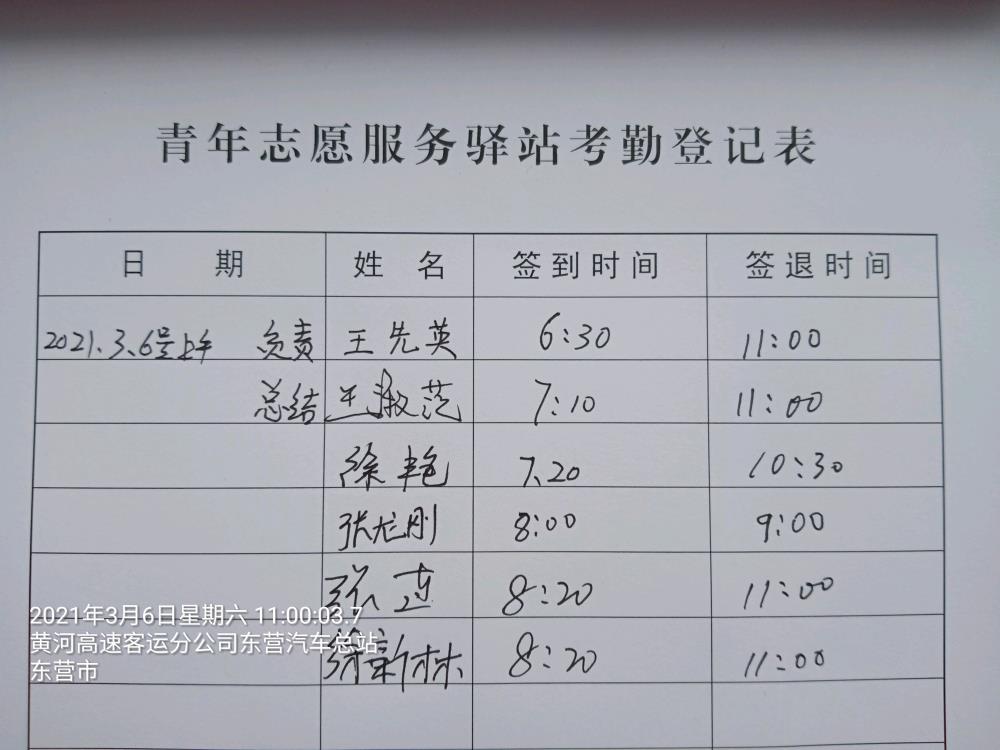 青年志愿服务驿站考勤登记表
日 期 姓 名 签到时间 签退时间
2021.3.6号上午 负责 王先英 6:30 11:00
总结 王淑范 7:10 11:00
徐艳 7.20 10:30
张龙刚 8:00 9:00
张莲 8:20 11:00
徐新林 8:20 11:00
2021年3月6日星期六 11:00:03.7
黄河高速客运分公司东营汽车总站
东营市